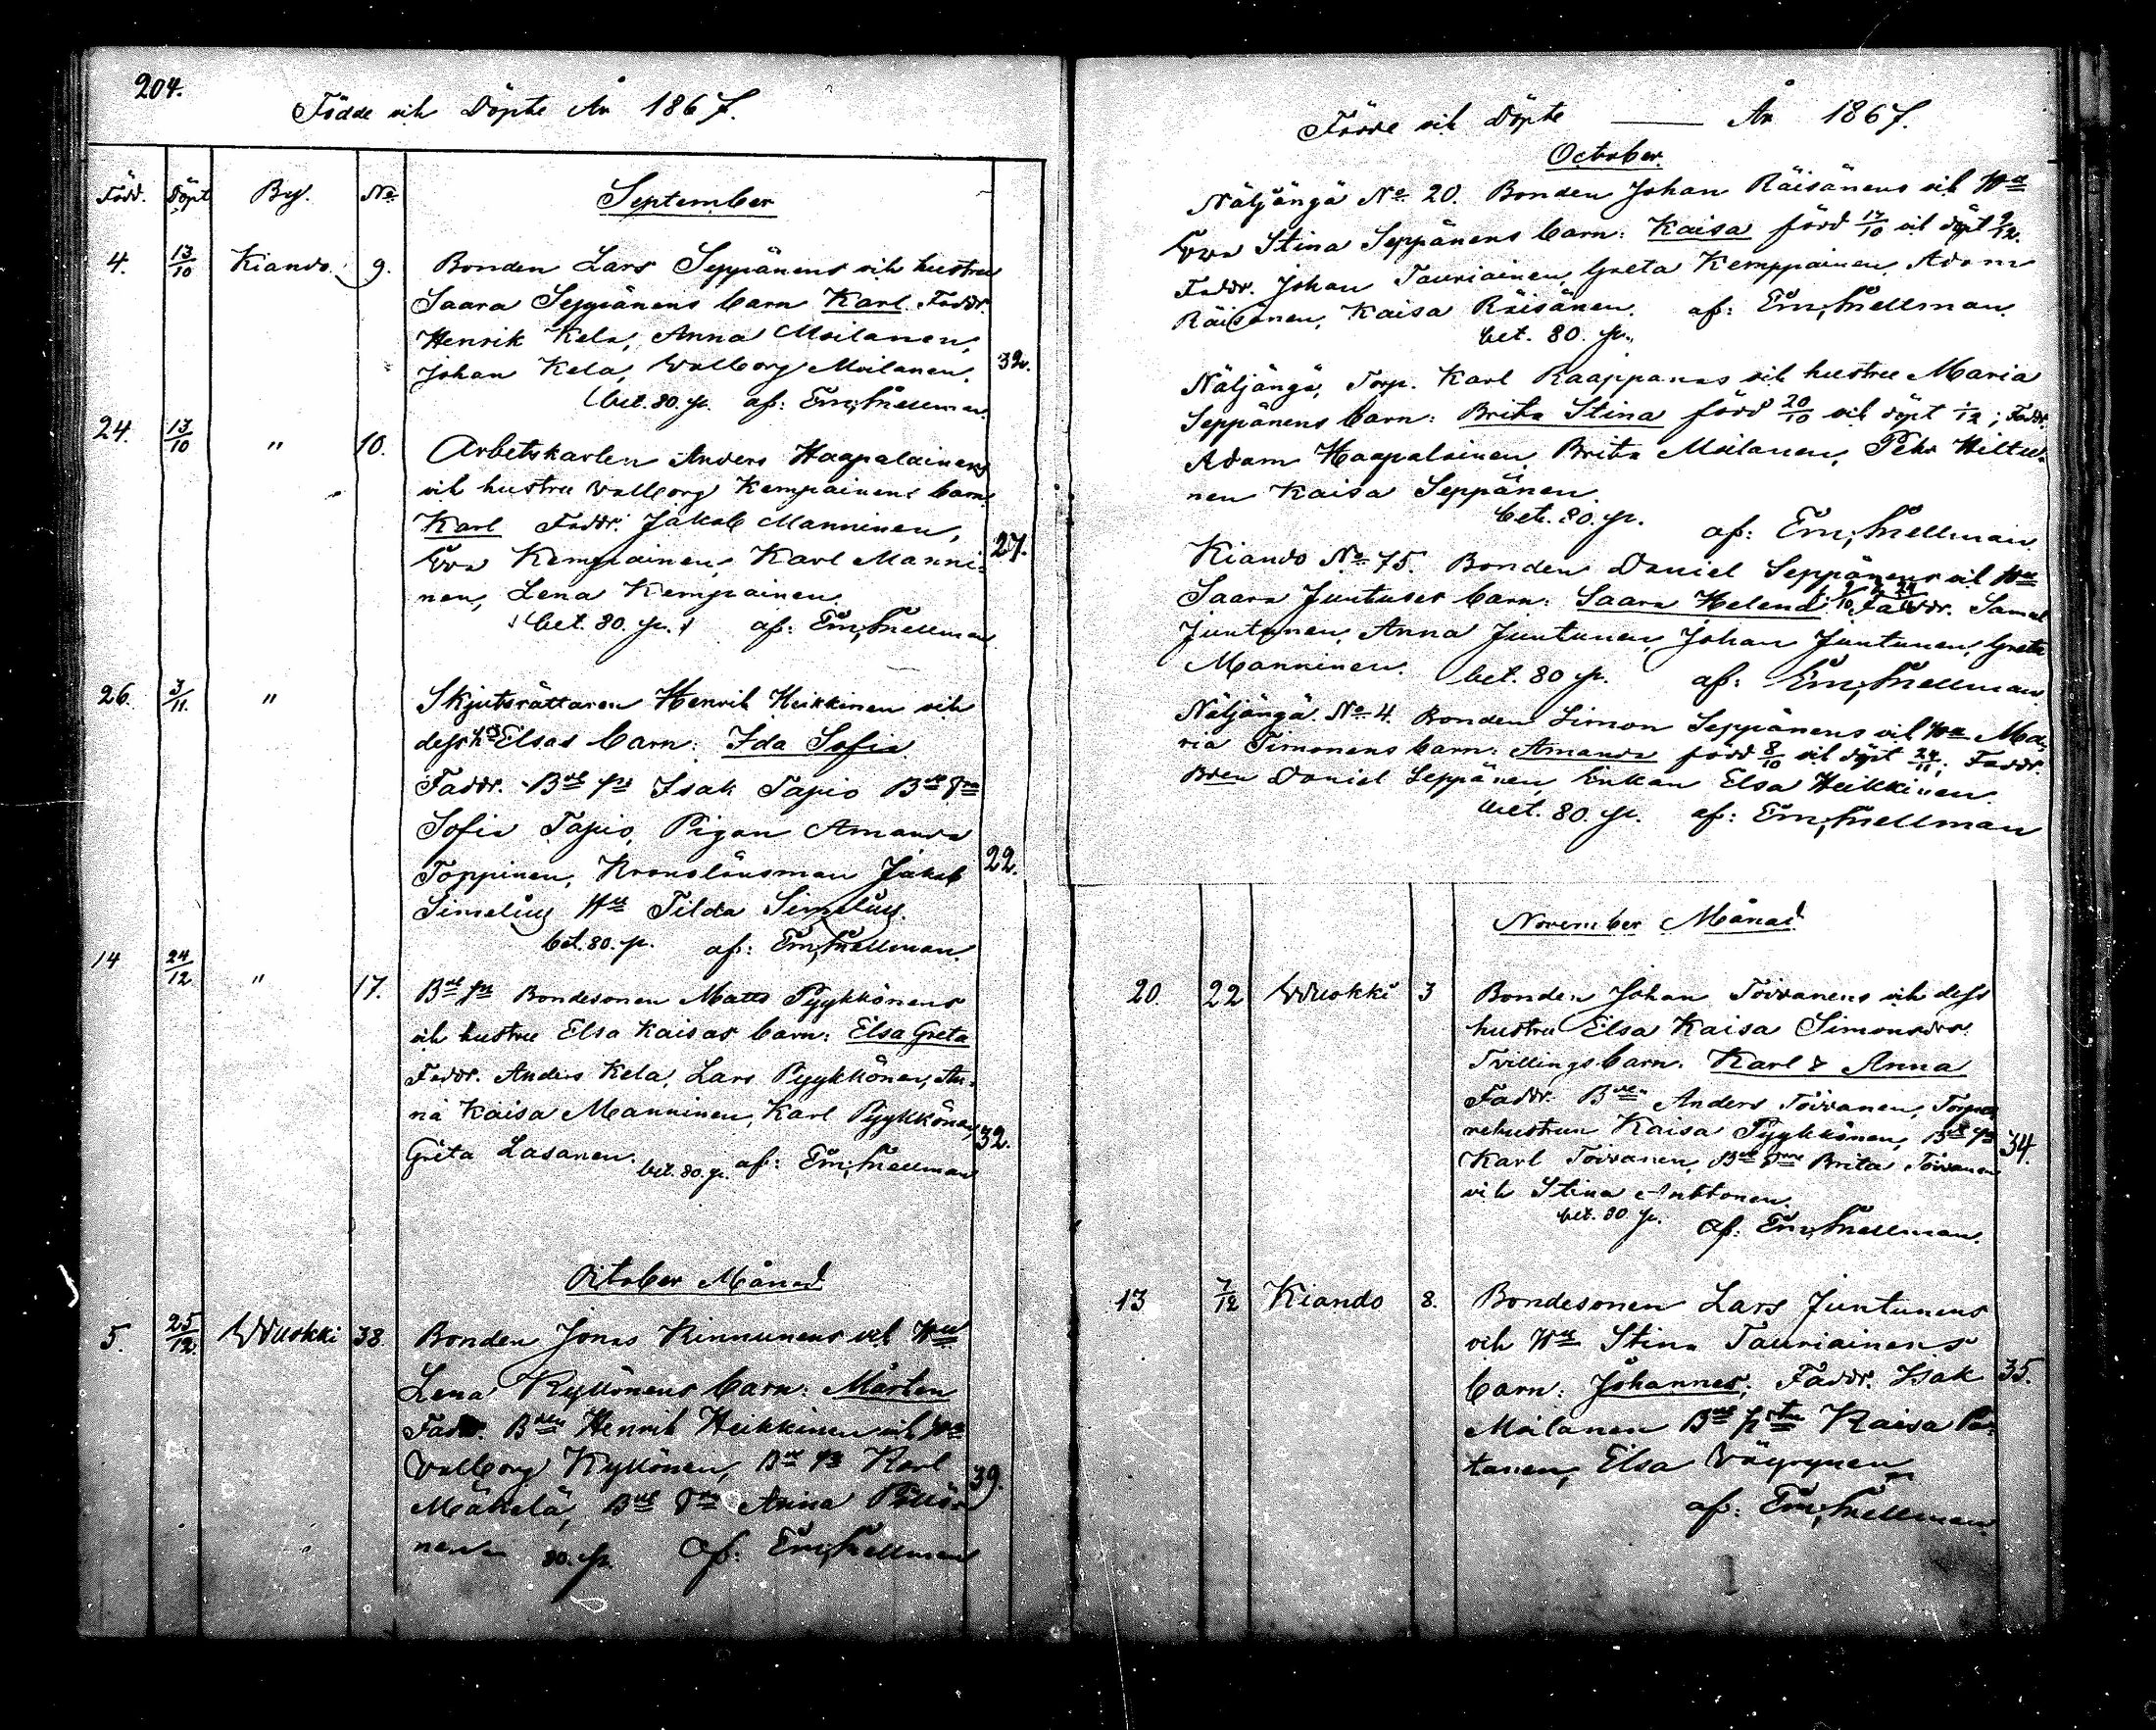 204.
Födde och Döpte År 1867.
Född. Döpt By. No September
4. 13/10 Kiando 9. Bonden Lars Seppänens och hustru
Saara Seppänens barn Karl. Faddr.
Henrik Kela, Anna Moilanen,
Johan Kela, Walborg Moilanen. 32.
bet. 80. p. af: Em. Snellman.
24. 13/10 " 10. Arbetskarlen Anders Haapalainens
och hustru Walborg Kempainens barn
Karl Faddr. Jakob Manninen,
Eva Kempainen, Karl Manni- 27.
nen, Lena Kempainen.
bet. 80. p. af: Em. Snellman
26. 3/11. " Skjutsrättaren Henrik Heikkinen och
dess h. Elsas barn: Ida Sofia
Faddr. Isak Tapio
Sofia Tapio, Pigan Amanda
Toppinen, Kronolänsman Jakob 22.
Simelius Hu Tilda Simelius.
bet. 80. p. af: Em. Snellman.
14 24/12 " 17. Bondesonen Matts Pyykkönens
och hustru Elsa Kaisas barn: Elsa Greta
Faddr. Anders Kela, Lars Pyykkönen, An-
na Kaisa Manninen, Karl Pyykkönen, 32.
Greta Lasanen. bet. 80. p. af: Em. Snellman
October Månad
5. 25/12. Wuokki 38. Bonden Jonas Kinnunens och Hu
Lena Kyllönens barn: Mårten
Faddr. Bden Henrik Heikkinen och Hu
Walborg Kyllönen, Karl 39.
Mäkelä, Anna
nen 80. p. af: Em. Snellman
Födde och Döpte — År 1867.
October.
Näljängä No 20. Bonden Johan Räisänens och Hu
Eva Stina Seppänens barn: Kaisa född 17/10 och döpt 9/12.
Faddr. Johan Tauriainen, Greta Kemppainen, Adam
Räisänen, Kaisa Räisänen. af: Em. Snellman.
bet. 80. p.
Näljängä, Torp. Karl Raappanas och hustru Maria
Seppänens barn: Brita Stina född 20/10 och döpt 1/12; Faddr.
Adam Haapalainen, Brita Moilanen, Pehr Hiltu-
nen Kaisa Seppänen.
bet. 80. p. af: Em. Snellman.
Kiando No 75. Bonden Daniel Seppänens och Hu
Saara Juntuses barn: Saara Helena. Faddr. Samel
Juntunen, Anna Juntunen, Johan Juntunen, Greta
Manninen. bet. 80 p. af: Em. Snellman
Näljängä No 4. Bonden Simon Seppänens och Hu Ma-
ria Timonens barn: Amanda född 8/10 och döpt 24/11; Faddr.
Bden Daniel Seppänen, Enkan Elsa Heikkinen.
bet. 80. p. af: Em. Snellman
November Månad
20. 22 Wuokki 3 Bonden Johan Toivanens och dess
hustru Elsa Kaisa Simonsdrs
Tvillingsbarn. Karl & Anna
Faddr. Bden Anders Toivanen, Torpa-
rehustrun Kaisa Pyykkönen, 34.
Karl Toivanen, Brita Toivanen
och Stina
bet. 80 p. af: Em. Snellman.
13 7/12 Kiando 8. Bondesonen Lars Juntunens
och Hu Stina Tauriainens
barn: Johannes; Faddr. Isak 35.
Moilanen Kaisa
tanen, Elsa Väyrynen
af: Em. Snellman.